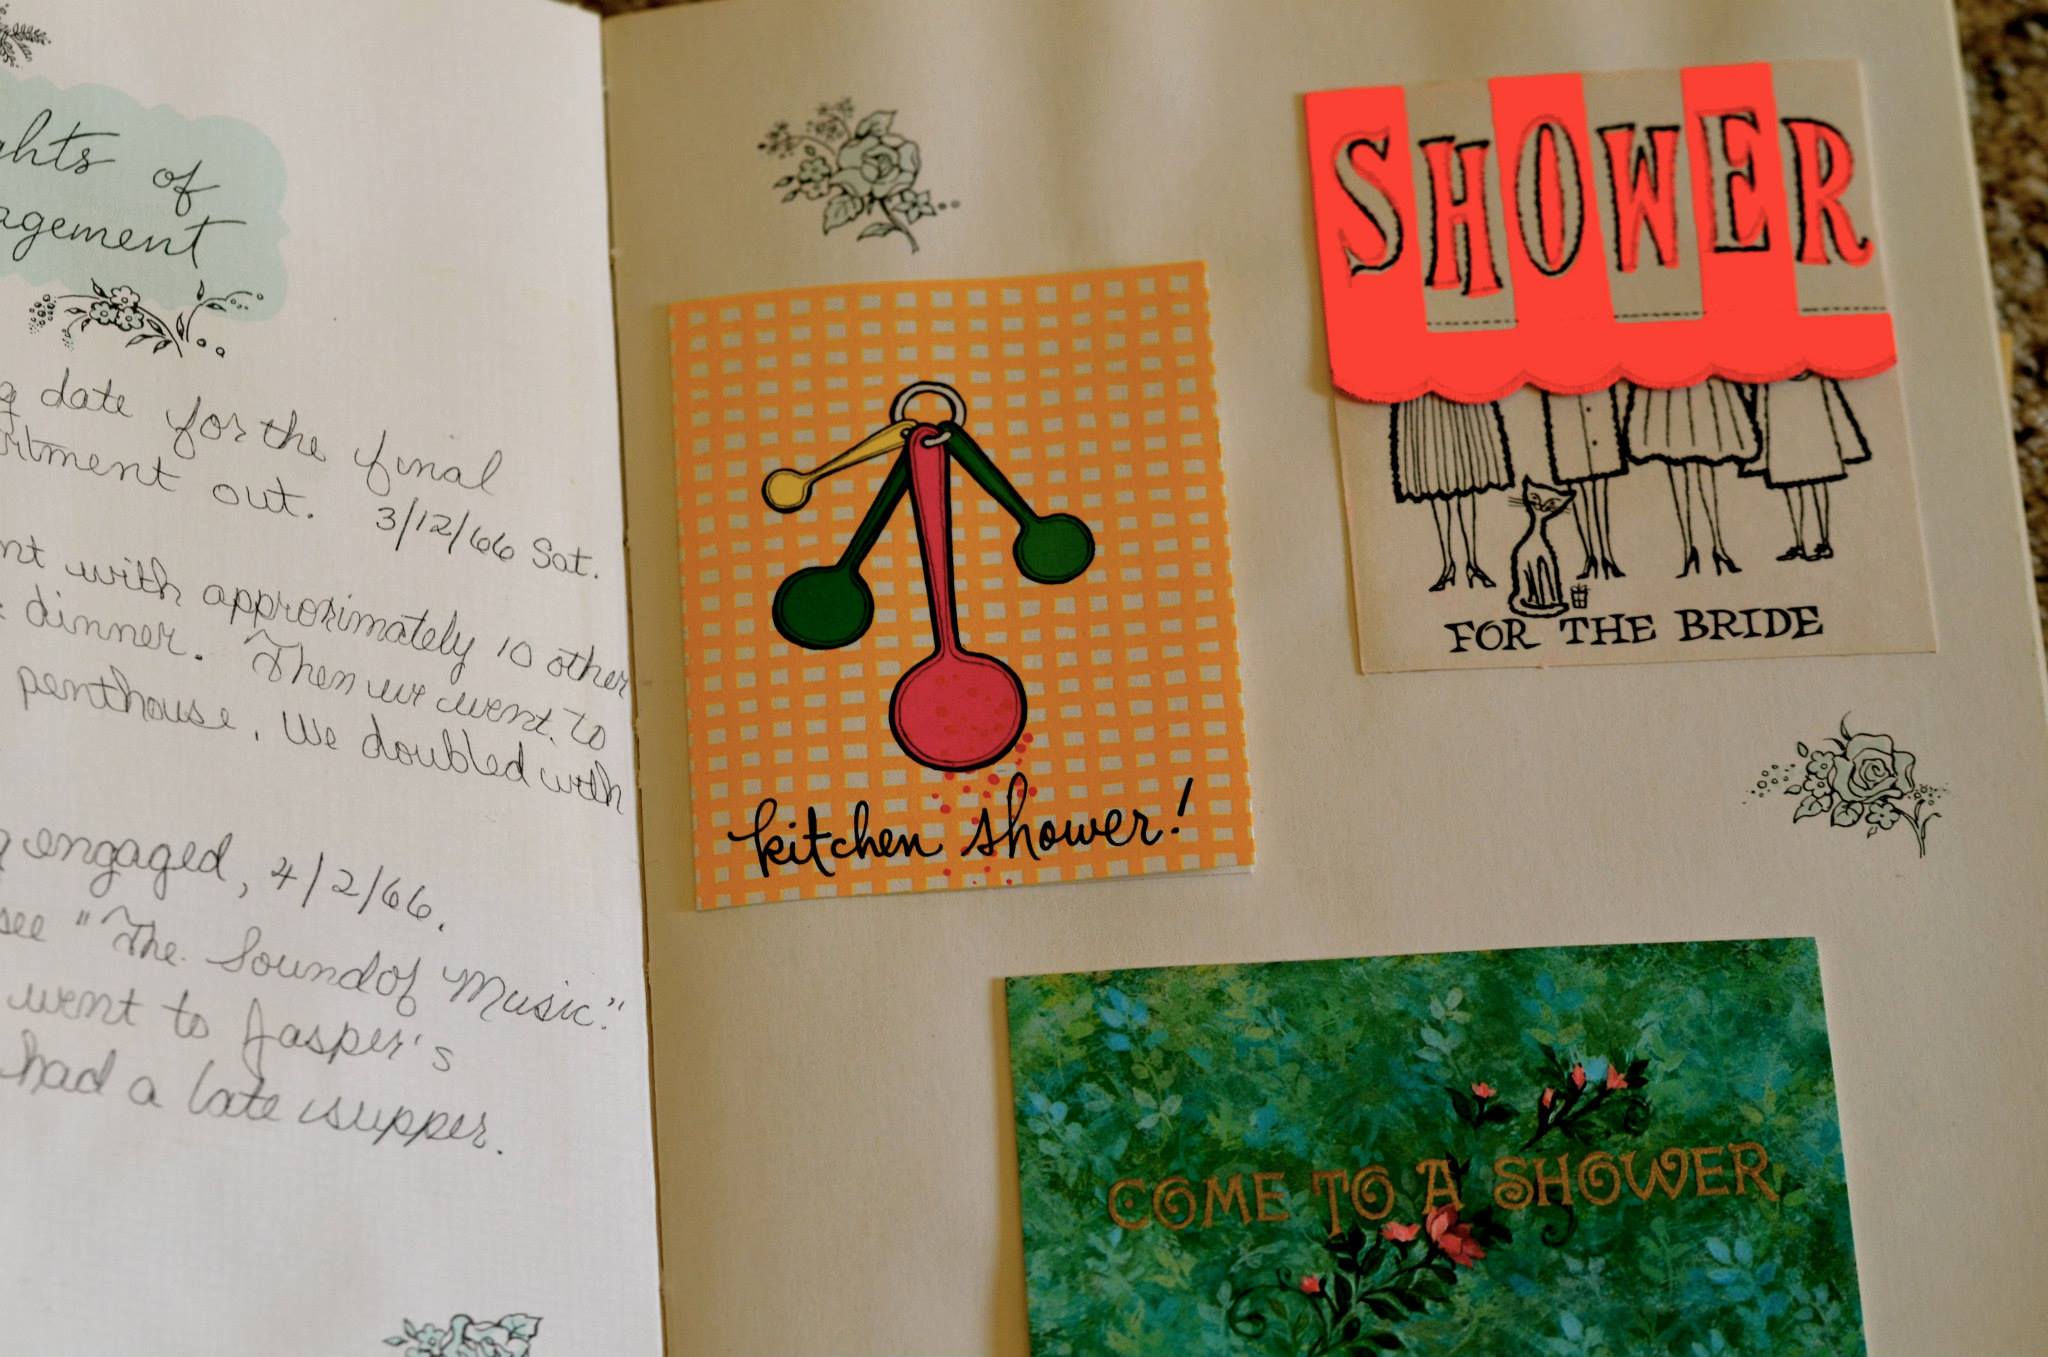 of
date for the final
out. 3/12/66 Sat.
with approximately 10 other
dinner. Then we went to
penthouse. We doubled with
engaged, 4/2/66.
see "The Sound of Music."
went to Jasper's
had a late supper.
kitchen shower!
SHOWER
FOR THE BRIDE
COME TO A SHOWER